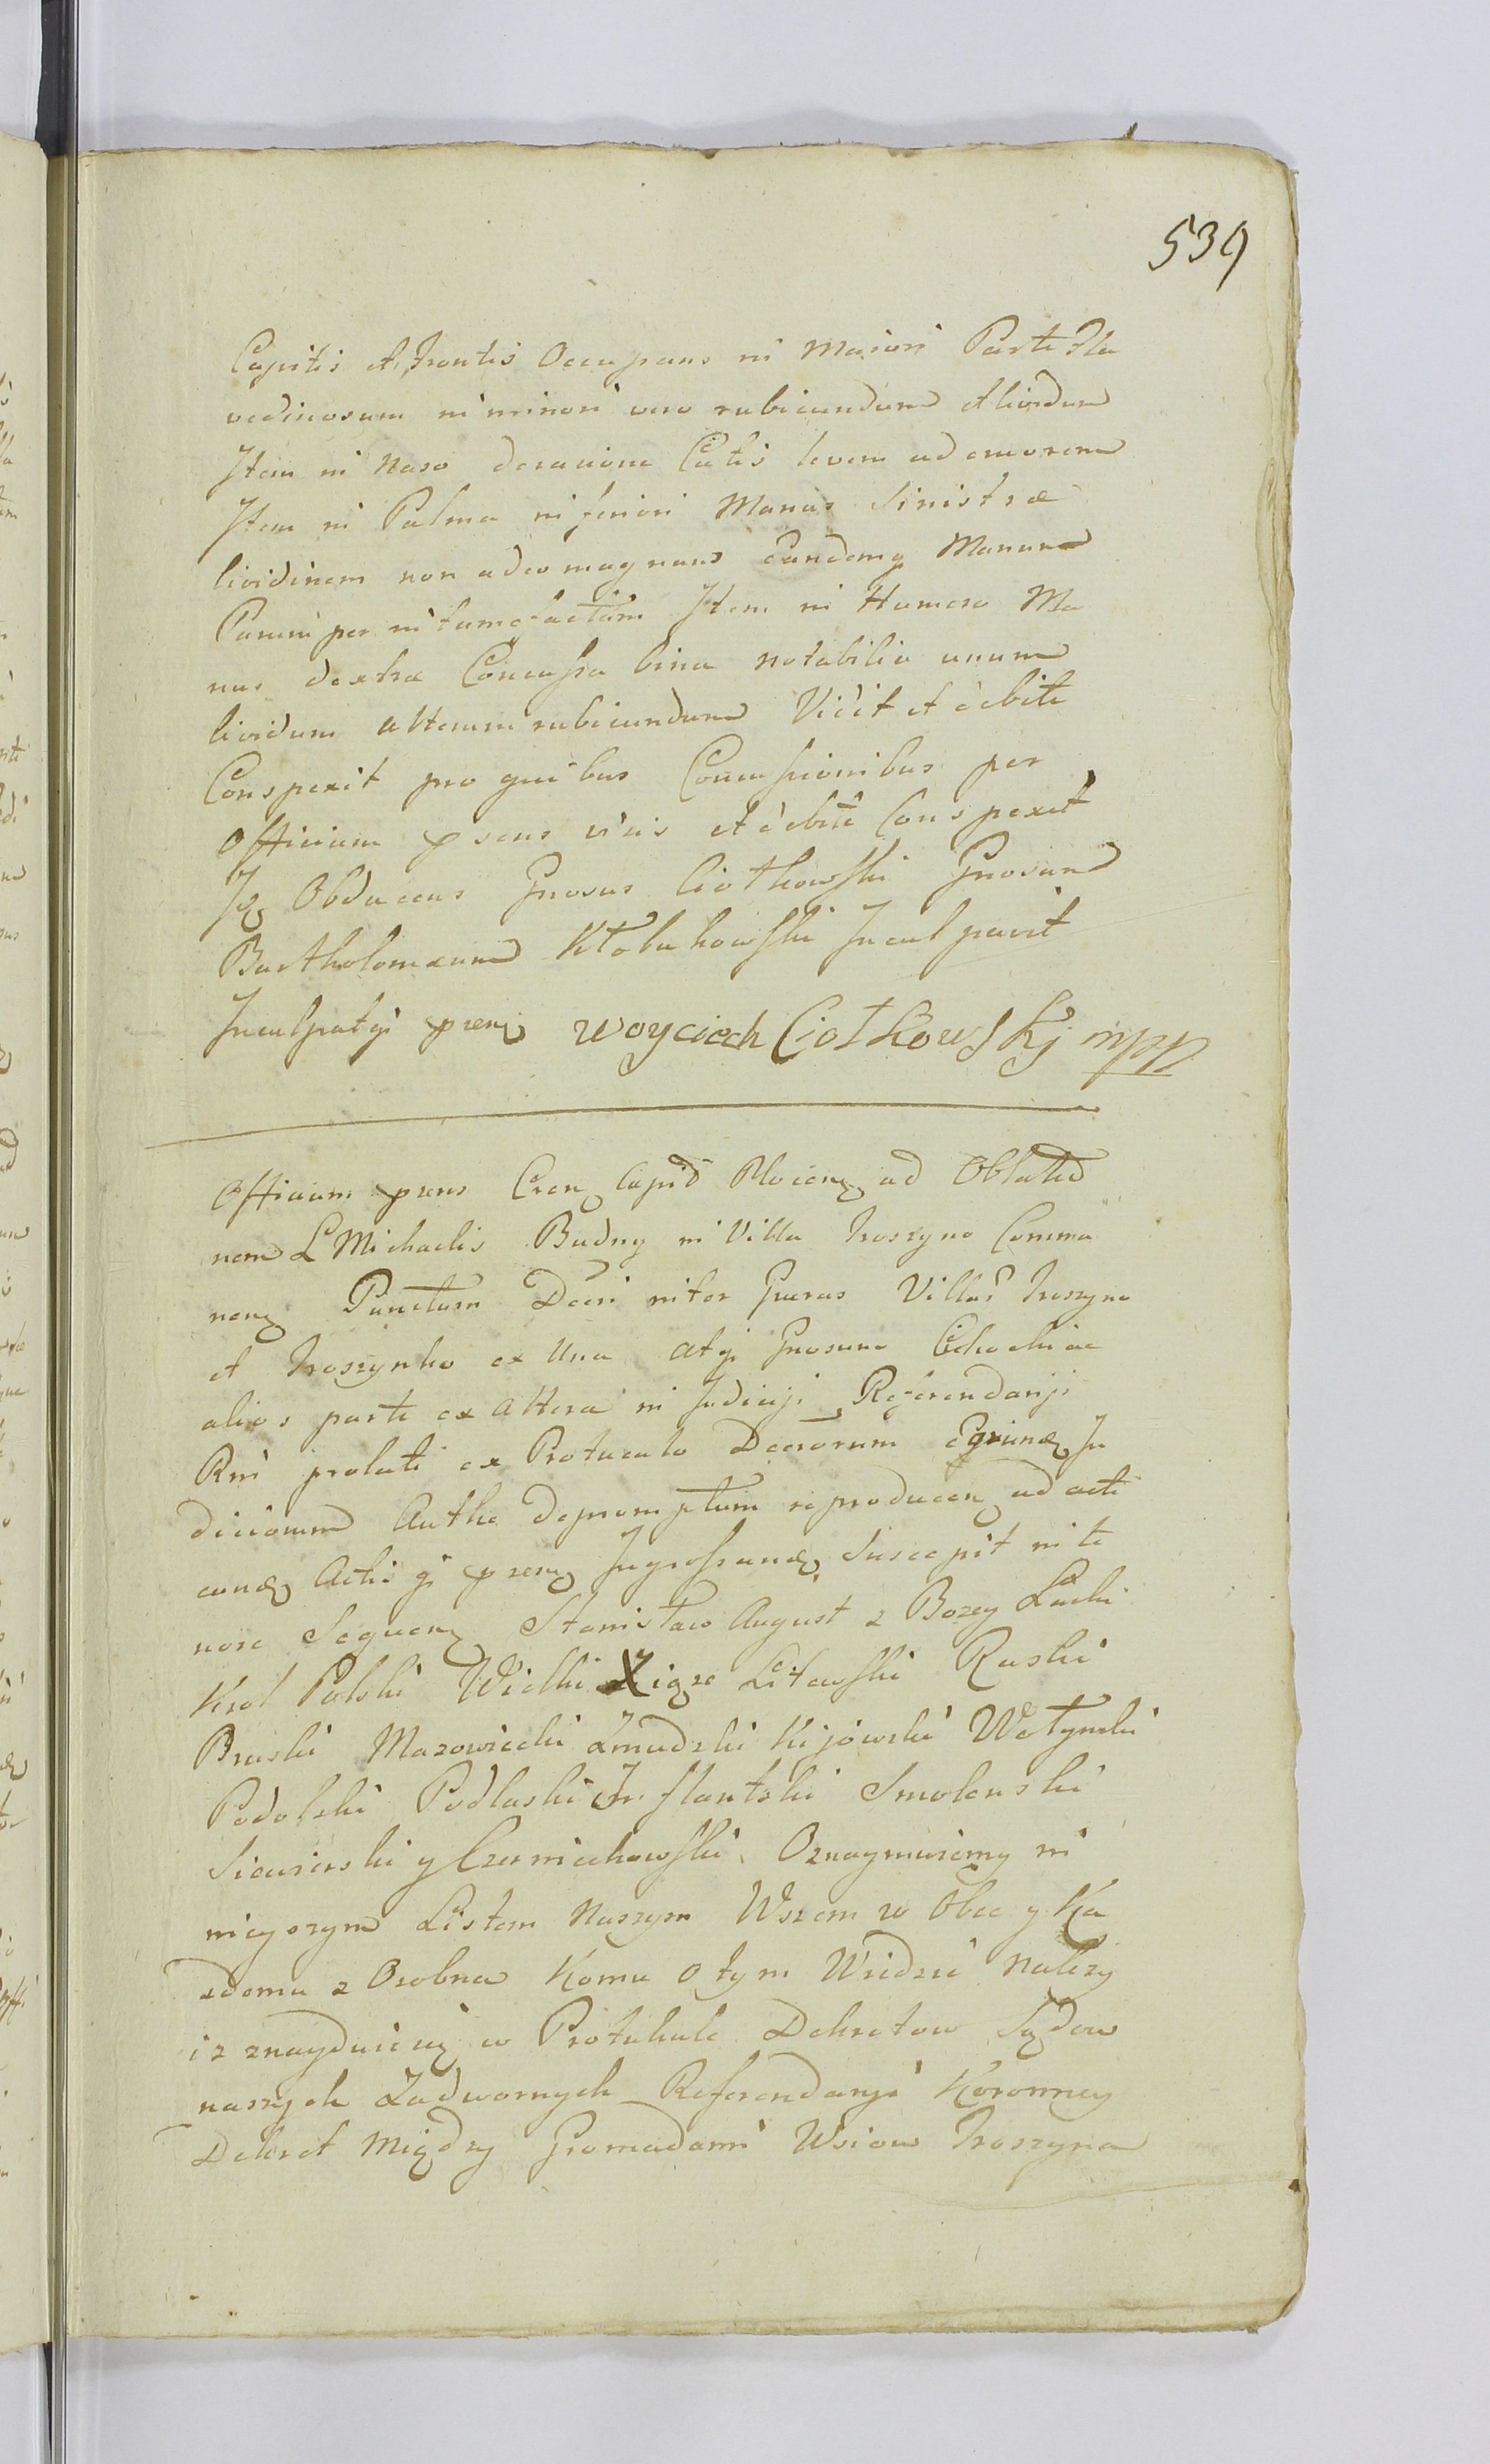 539
Capitis et Frontis Occupans in Maiori Parte Fla
vedinosum in minori vero rubicundum et lividum
Item in Naso Cutis levem ad cruorem
Item in Palma inferiori Manus Sinistræ
lividinem non adeo magnam Eandemq Manum
Parum per intumefactam Item in Humero Ma
nus dextræ Concussa bina notabilia unum
lividum alterum rubicundum Vidit et debite
Conspexit pro quibus Concussionibus per
Officium psens visis et debite Conspexit
Obducens Gnosus Ciotkowski Gnosum
Bartholomæum Kłobukowski Inculpavit
Inculpatq præns Woyciech Ciotkowskj mpp
Officium præns Cren Capid ad Oblatio
nem L Michaelis Budny in Villa Troszyno Comma
nen Punctum Decri inter Villar Troszyno
et Troszynko ex Una atq Gnosum
alios parte ex Altera in Judicijs Referendarij
Rni prolati ex Protuculo Decrorum Ju
diciorum Authe Depromptum reproducen ad acti
cand Actisq præn Ingrossand Suscepit in te
nore Sequen Stanisław August z Bozey Łaski
Krol Polski Wielki Xiąze Litewski Ruski
Pruski Mazowiecki Zmudzki Kijowski Wołynski
Podolski Podlaski Inflantski Smolenski
Siewierski y Czerniechowski Oznaymuiemy ni
nieyszym Listem Naszym Wszem w Obec y Ka
zdemu z Osobna Komu o tym Wiedzieć Nalezy
iz znayduie się w Protukule Dekretow Sądow
naszych Zadwornych Referendarji Koronney
Dekret Między Gromadami Wsiow Troszyna